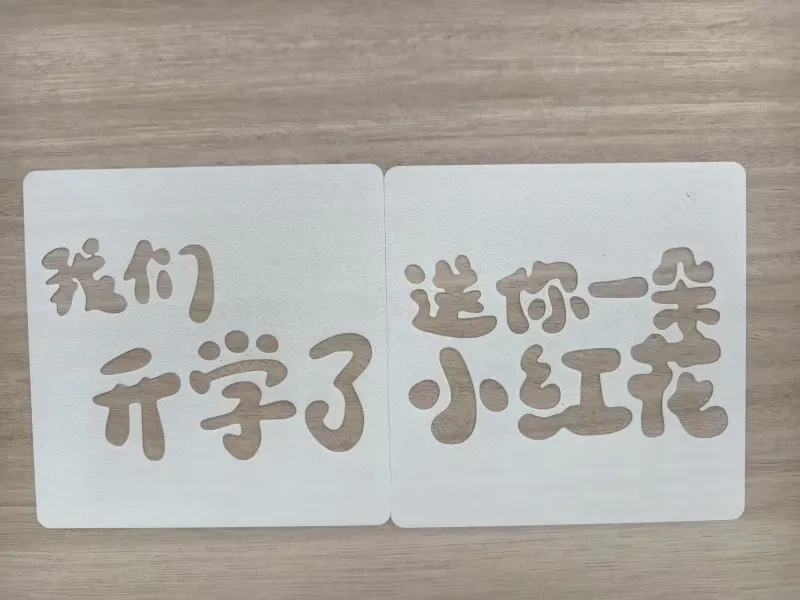 我们
开学了
送你一朵
小红花